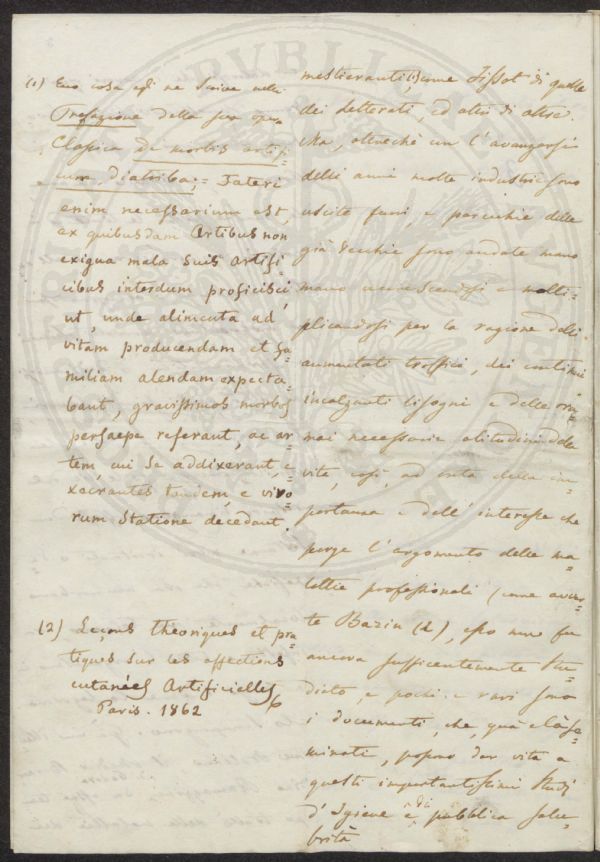 (1) Ecco cosa egli ne scrive nella
Prefazione della sua opera
Classica De morbis artifi=
cum, Diatriba; = Fateri
enim necessarium est,
ex quibusdam Artibus non
exigua mala suis Artifi=
cibus interdum proficisci,
ut, unde alimenta ad
vitam producendam et fa=
miliam alendam expecta=
bant, gravissimos morbos
persaepe referant, ac ar=
tem, cui se addixerant, e=
xecrantes tandem, e vivo=
rum Statione decedant.
(2) Leçons théoriques et pra=
tiques sur les affections
cutanées Artificielles
Paris. 1862
mestieranti, (1) come Tissot di quelle
dei letterati, ed altri di altre.
Ma, oltrechè con l'avanzarsi
delli anni molte industrie sono
uscite fuori, e parecchie delle
già vecchie sono andate mano
mano accrescendosi e molti=
plicandosi per la ragione delli
aumentati traffici, dei continui
incalzanti bisogni e delle or=
mai necessarie abitudini della
vita, così, ad onta della im=
portanza e dell'interesse che
porge l'argomento delle ma=
lattie professionali (come avver=
te Bazin (2), esso non fu
ancora sufficentemente stu=
diato, e pochi e rari sono
i documenti, che, quà e là se=
minati, possono dar vita a
questi importantissimi studj
d'Igiene e di pubblica salu=
brità
RPVBLIC